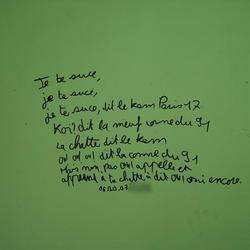 Je te suce,
je te suce,
je te suce, dit le kem Paris 17
Koi? dit la meuf conne du 91
La chatte dit le kem
oui oui oui dit la conne du 91
Mais non, pas oui appelle et
apprend à ta chatte à dit oui oui encore.
06.20.03